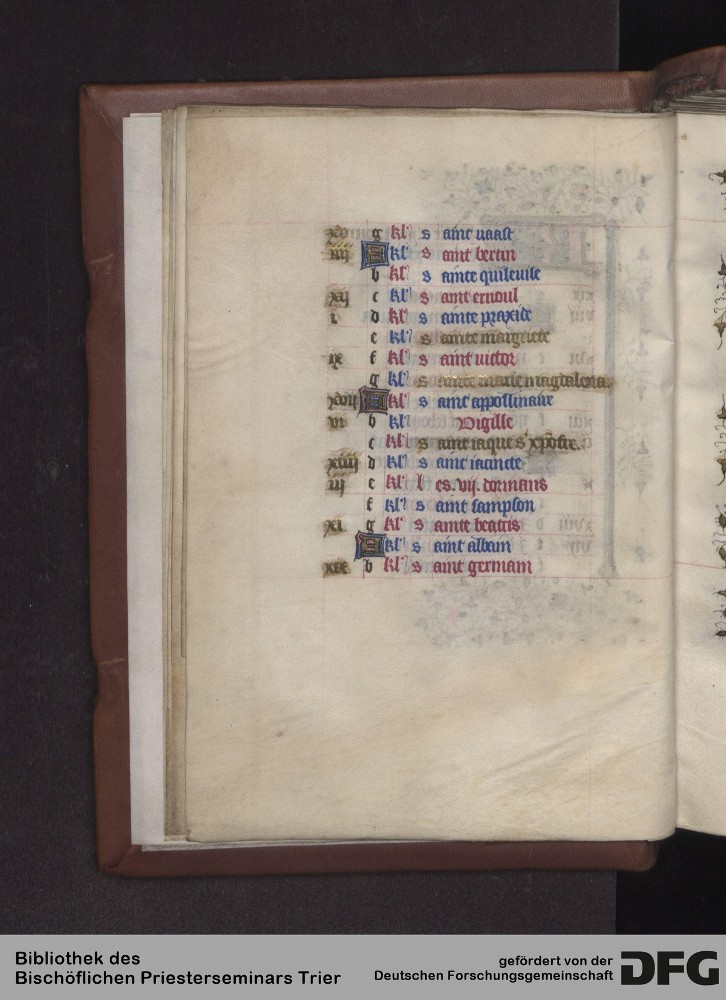 g kl' s aint uaast
iiij A kl' s aint bertin
b kl' s ainte quileuile
xij c kl' s aint ernoul
i. d kl' s ainte praxide
e kl' s ainte margriete
ix f kl' s aint uictor
g kl' s ainte marie magdalena.
xvii A kl' s aint appollinaire
vi b kl' Vigille
c kl' s aint iaque s' xpofre.
xiiij d kl' s aint iacincte
iij e kl' l es. vij. dormans
f kl' s aint sampson
xi. g kl' s ainte beatris
A kl' s aint albain
xix b kl' s aint germain
Bibliothek des
Bischöflichen Priesterseminars Trier
gefördert von der
Deutschen Forschungsgemeinschaft
DFG